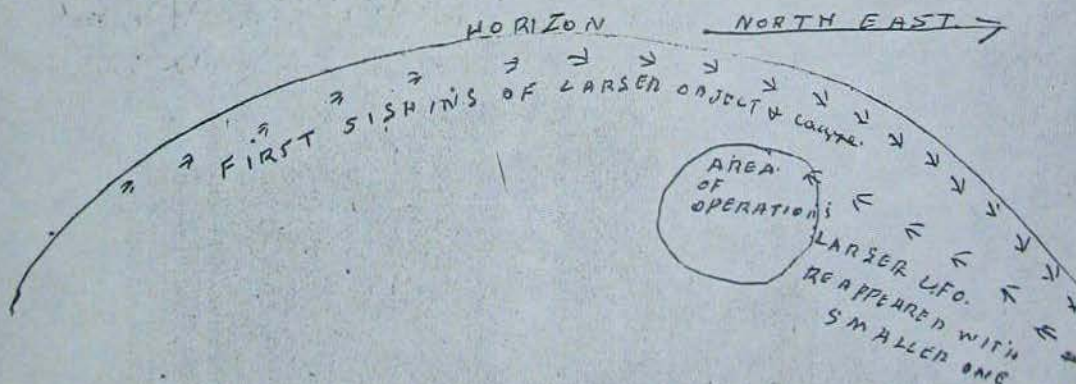 HORIZON
NORTH EAST
FIRST SISHINS OF LARSER OBJECT & course.
AREA
OF
OPERATIONS
LARSER UFO.
REAPPEARED WITH
SMALLER ONE